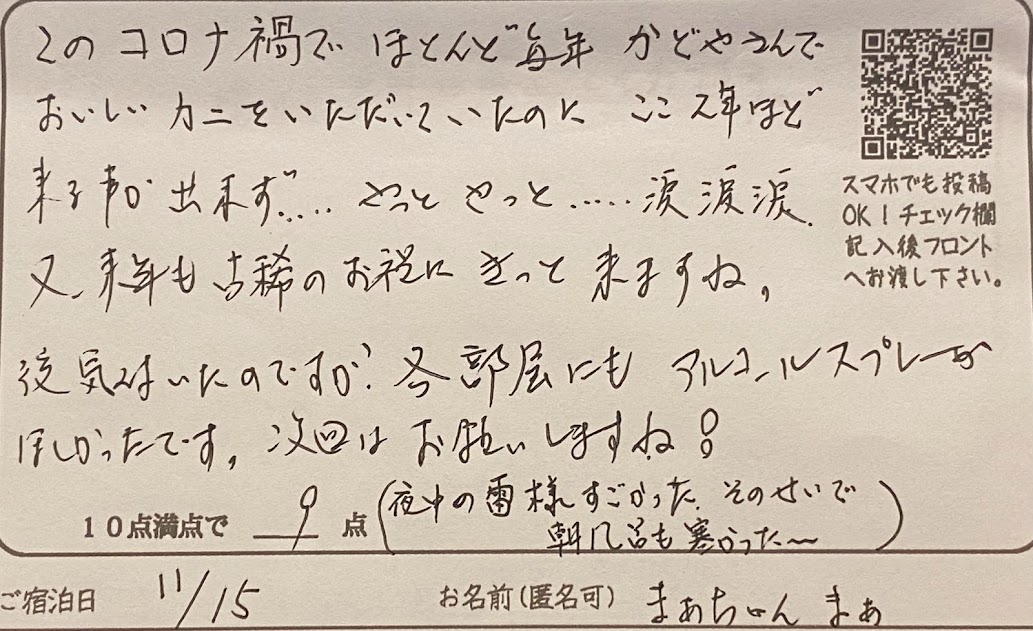 このコロナ禍で ほとんど毎年 かどやさんで
おいしいカニをいただいていたのに ここ2年ほど
来る事が出来ず..... やっと やっと.....涙涙涙.
又、来年も古稀のお祝に きっと来ますね。
後 気付いたのですが、各部屋にも アルコールスプレーが
ほしかったです。次回は お願いしますね!
スマホでも投稿
OK!チェック欄
記入後フロント
へお渡し下さい。
10点満点で 9 点 (夜中の雷様すごかった.そのせいで
朝風呂も寒かった〜)
ご宿泊日 11/15 お名前(匿名可) まあちゃん まあ